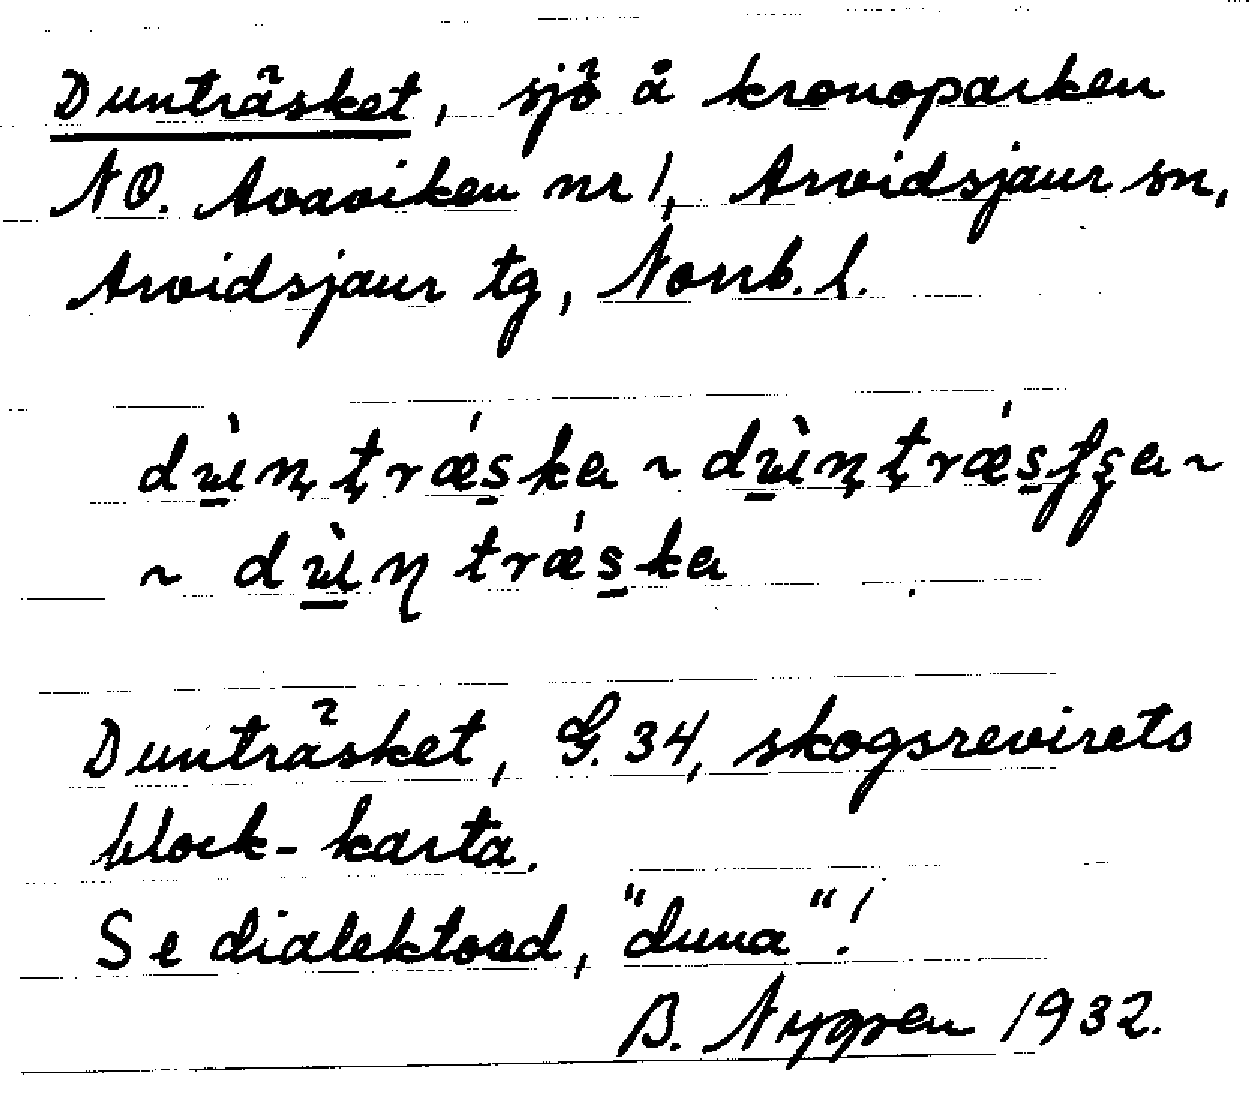 Dunträsket, sjö å kronoparken
NO. Avaviken nr 1, Arvidsjaur sn,
Arvidsjaur tg, Norrb. l.
Dunträsket, G. 34, skogsrevirets
block-karta.
Se dialektord, "duna"!
B. Nygren 1932.